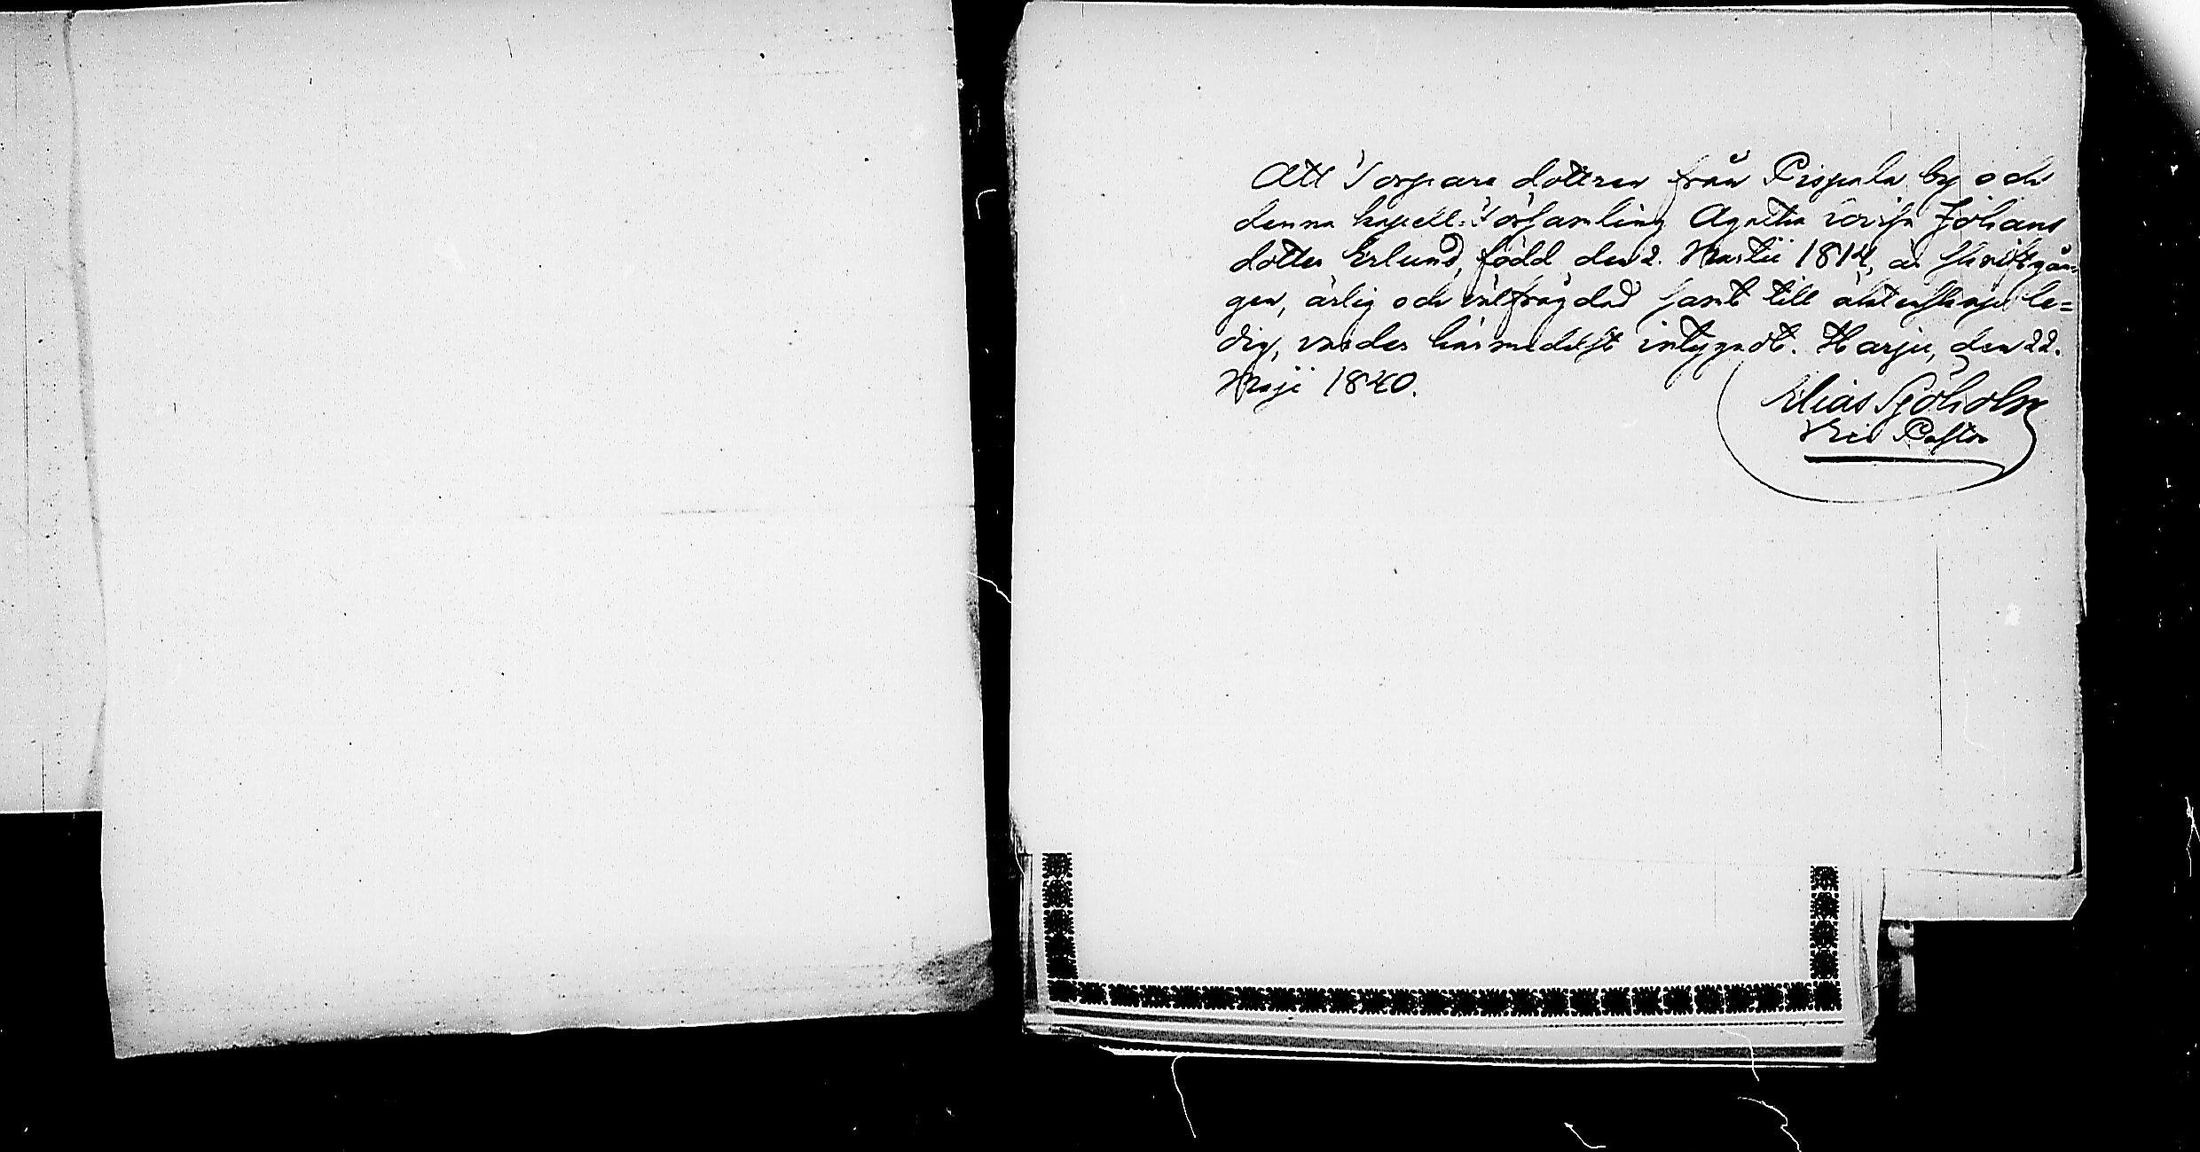 Att Torpare dottren från Pispala by och
denna kapell-Församling Agatha Lovisa Johans
dotter Erlund, född den 2. Martii 1814, är skriftgån-
gen, ärlig och välfrägdad samt till äktenskap le=
dig, varder härmedelst intygadt. Harju, den 22.
Maji 1840.
Elias Sjöholm
Vic Pastor